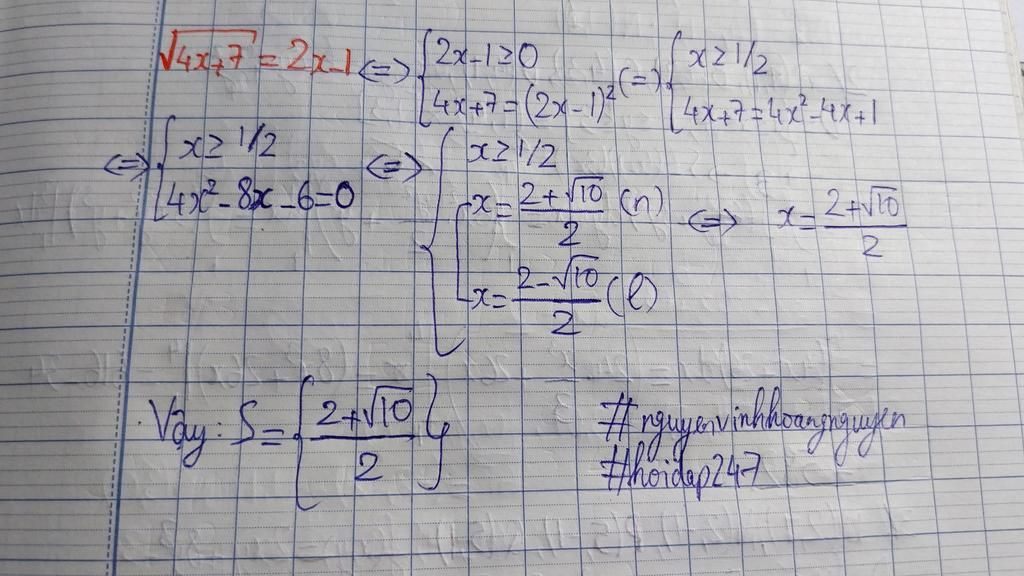 √4x+7 = 2x-1 ⇔ { 2x-1 ≥ 0 ; 4x+7 = (2x-1)² (=) { x ≥ 1/2 ; 4x+7 = 4x² - 4x+1
⇔ { x ≥ 1/2 ; 4x² - 8x - 6 = 0 ⇔ { x ≥ 1/2 ; [ x = (2+√10)/2 (n) ; x = (2-√10)/2 (l) ⇔ x = (2+√10)/2
Vậy: S = { (2+√10)/2 }
#nguyenvinhhoangnguyen
#hoidap247